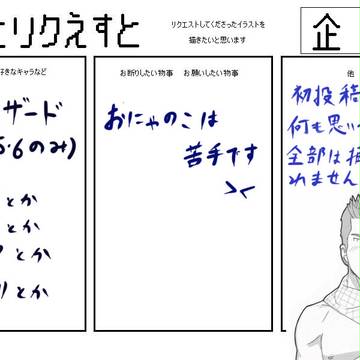 とリクえすと
リクエストしてくださったイラストを
描きたいと思います
企
好きなキャラなど
ザード
5.6のみ)
とか
とか
とか
リとか
お断りしたい物事 お願いしたい物事
おにゃのこは
苦手です
><
他
初投稿
何も思い
全部は描
れません